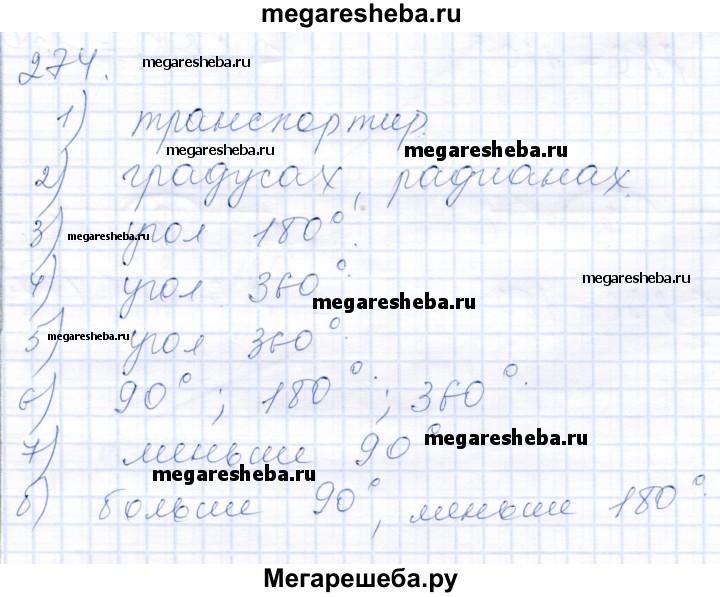 megaresheba.ru
274. megaresheba.ru
1) транспортир.
megaresheba.ru megaresheba.ru
2) градусах, радианах.
3) угол 180°.
megaresheba.ru
4) угол 360°.
megaresheba.ru megaresheba.ru
5) угол 360°.
megaresheba.ru
6) 90°; 180°; 360°.
7) меньше 90°
megaresheba.ru
megaresheba.ru
8) больше 90°, меньше 180°.
Мегарешеба.ру